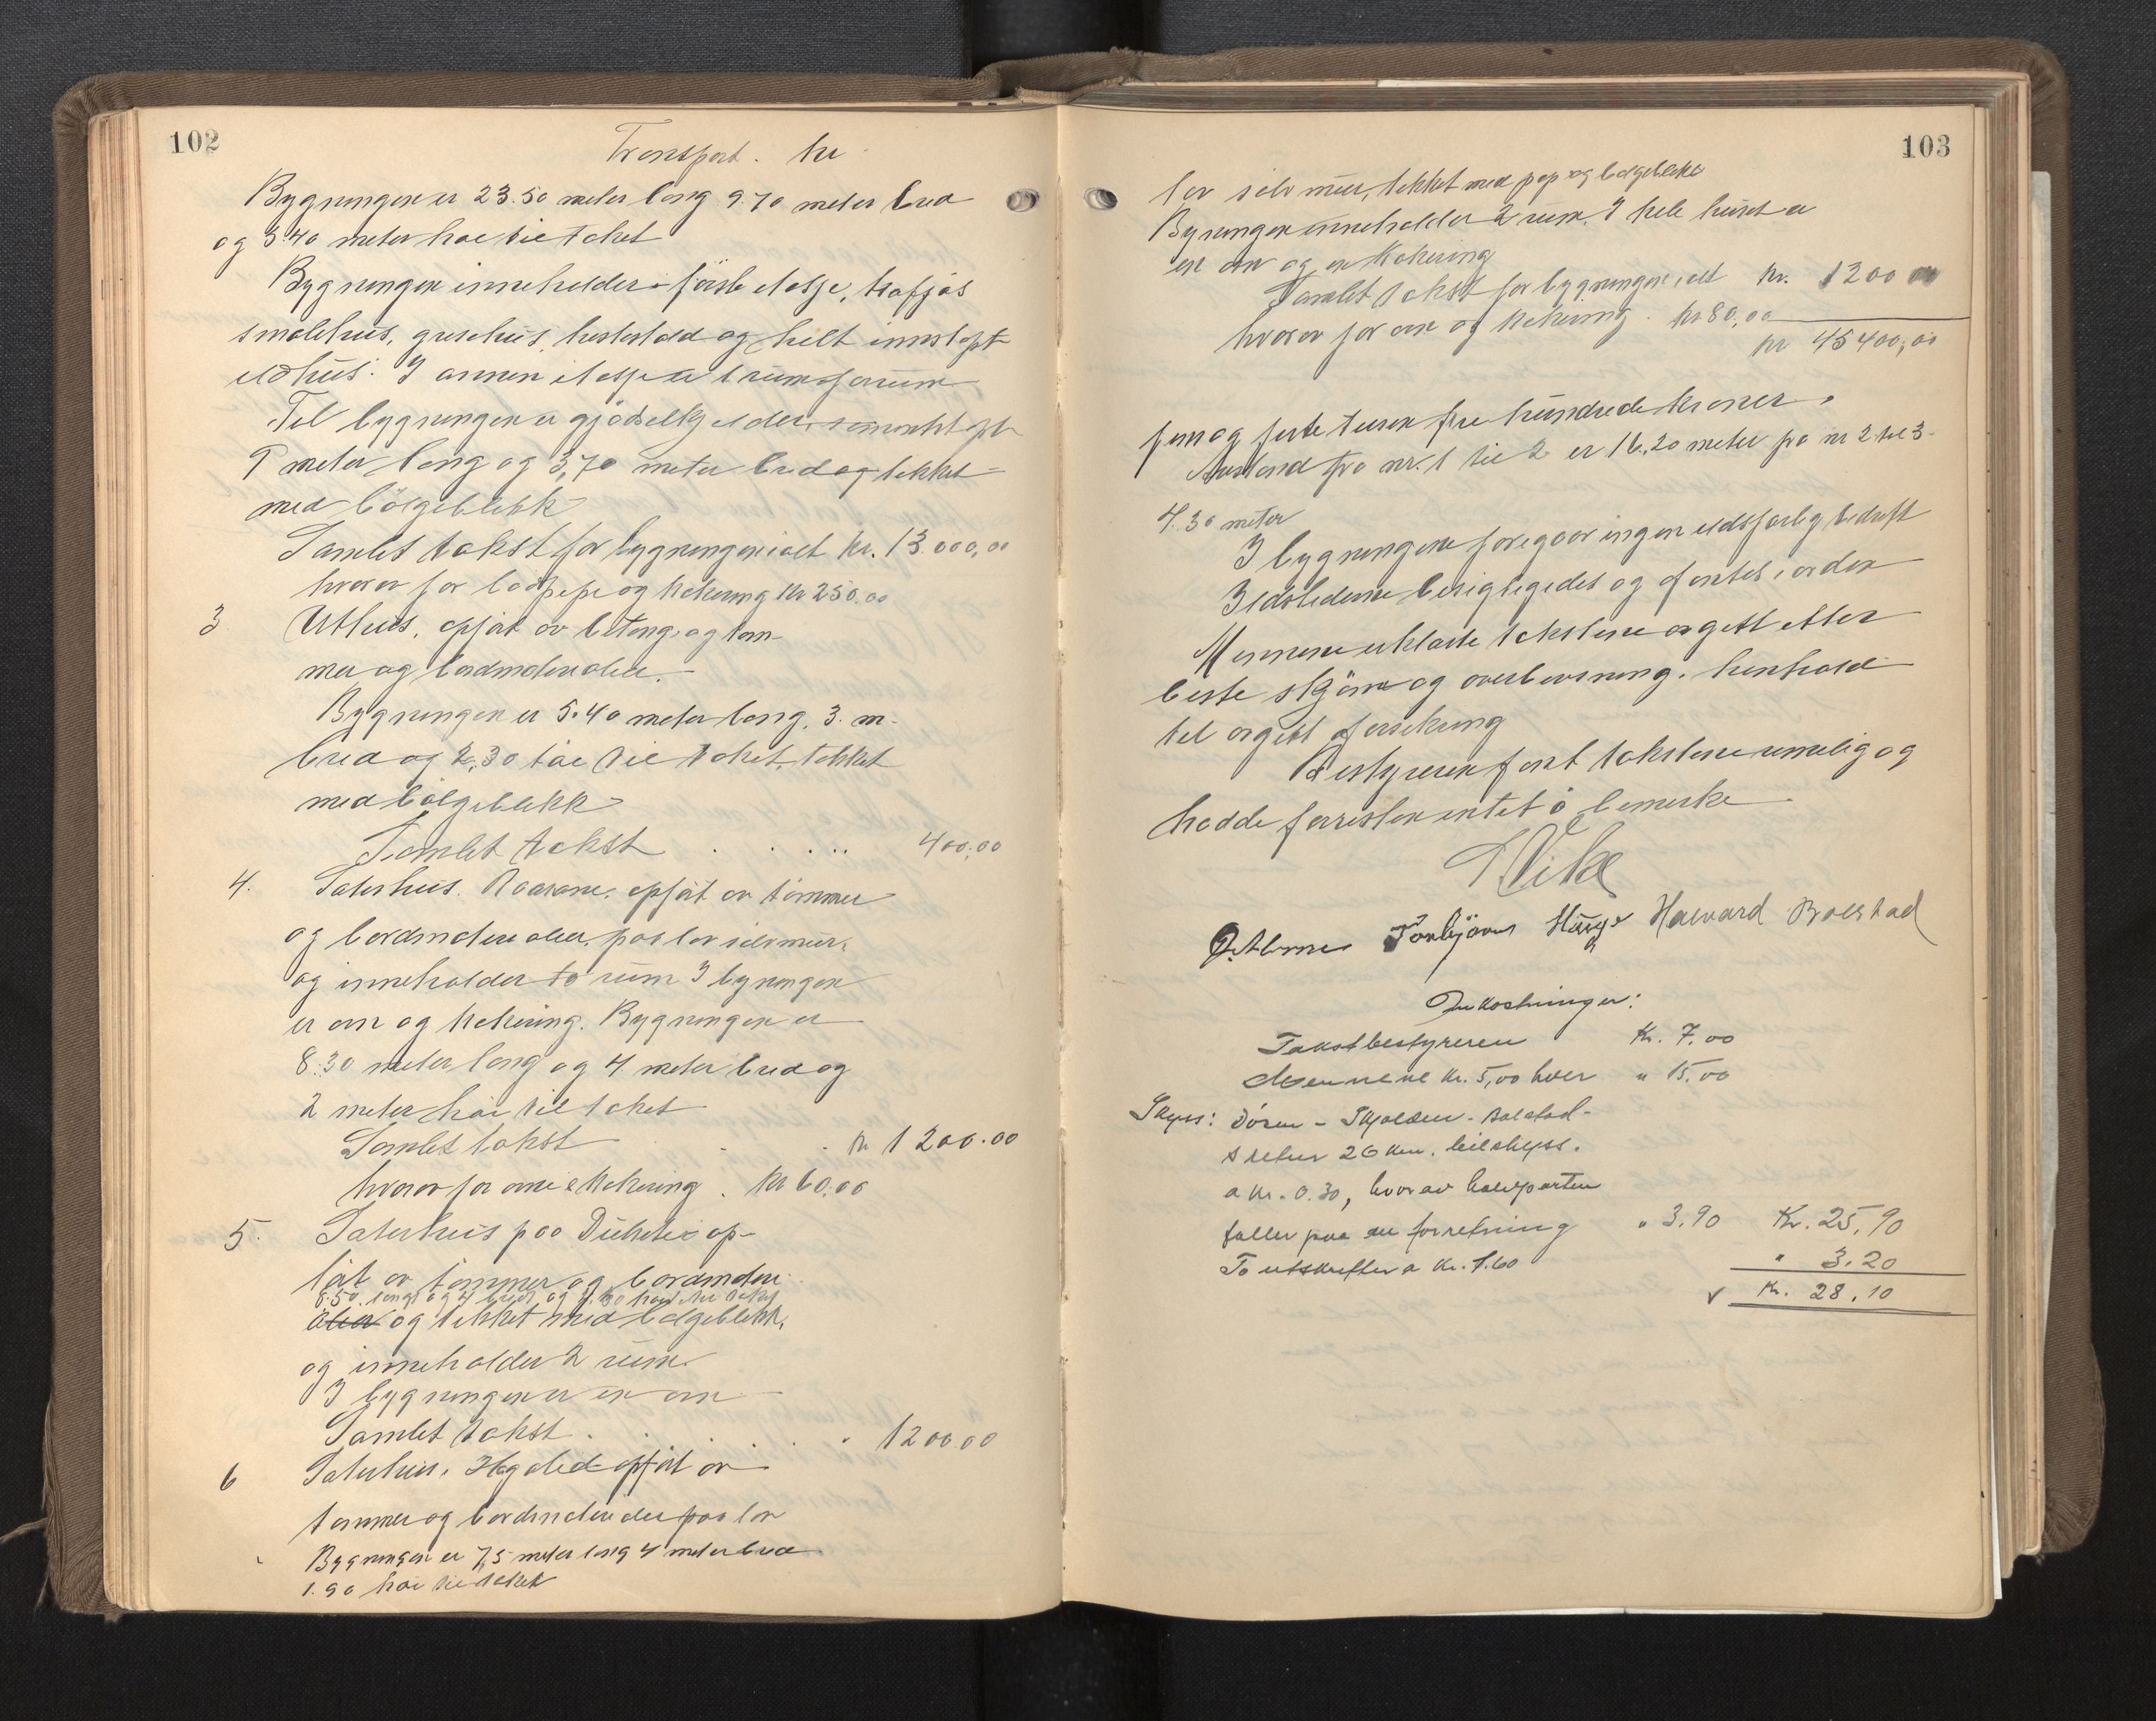 102
Transport. kr
Bygningen er 23.50 meter lang 9.70 meter bred
og 3.40 meter høi til taket
Bygningen inneholder i förste etasje, kufjøs
smalehus, grisehus, hestestald og helt innstöpt
eldhus. I annen etasje er 1 rum forrum
Til bygningen er gjödselkjelder, sementstöpt
9 meter lang og 3,70 meter bred og tekket
med bölgeblekk
Samlet takst for bygningen ialt kr. 13.000,00
hvorav for lodpipe og kokering kr 250.00
3 Uthus, opfört av betong og töm-
mer og bordmaterialer.
Bygningen er 5.40 meter lang, 3. m.
bred og 2,30 høi til taket, tekket
med bölgeblekk
Samlet takst . . . . . 400,00
4. Säterhus. opfört av tömmer
og bordmaterialer, paa lav selvmur,
og inneholder to rum I bygningen
er ovn og kokering. Bygningen er
8.30 meter lang og 4 meter bred og
2 meter høi til taket
Samlet takst . . kr 1200.00
hvorav for ovn & kokering . kr 60,00
5. Säterhus paa op-
fört av tömmer og bordmateri-
8.50 lang og 4 bred og høi til taket
aler og tekket med bölgeblekk,
og inneholder 2 rum.
I bygningen er en ovn
Samlet takst . . . . . 1200.00
6 Säterhus, opfört av
tömmer og bordmaterialer paa lav
Bygningen er 7,5 meter lang 4 meter bred
1.90 høi til taket
103
lav selvmur, tekket med pap og bölgeblekk
Bygningen inneholder 2 rum. I hele huset er
en ovn og en kokering
Samlet takst for bygningen, alt kr. 1200 00
hvorav for ovn og kokering . kr 80,00
kr 45400,00
fem og förti tusen fire hundrede kroner.
Avstand fra nr. 1 til 2 er 16.20 meter fra nr 2 til 3-
4.30 meter
I bygningene foregaar ingen ildsfarlig bedrift
Ildstederne besigtigedes og fantes i orden
Mennene erklærte takstene avgitt efter
beste skjönn og overbevisning i henhold
til avgitt forsikring
Bestyreren fant takstene rimelig og
hadde forresten intet å bemerke
Vike
Torbjörn Hauge Halvard Bolstad
Omkostninger:
Takstbestyreren Kr. 7.00
Mennene Kr. 5,00 hver " 15.00
Skyss: Døsen - Skjolden - Bolstad-
retur 26 km. bilskyss.
a Kr. 0.30, hvorav halvparten
faller paa en forretning " 3.90 Kr. 25,90
To utskrifter a Kr. 1.60 " 3.20
Kr. 28.10